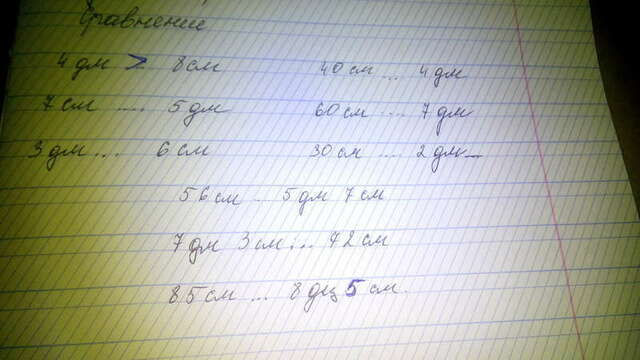 Сравнение
4 дм > 8 см 40 см ... 4 дм
7 см .... 5 дм 60 см .... 7 дм
3 дм ... 6 см 30 см .... 2 дм ...
56 см ... 5 дм 7 см
7 дм 3 см ... 42 см
85 см ... 8 дц 5 см.